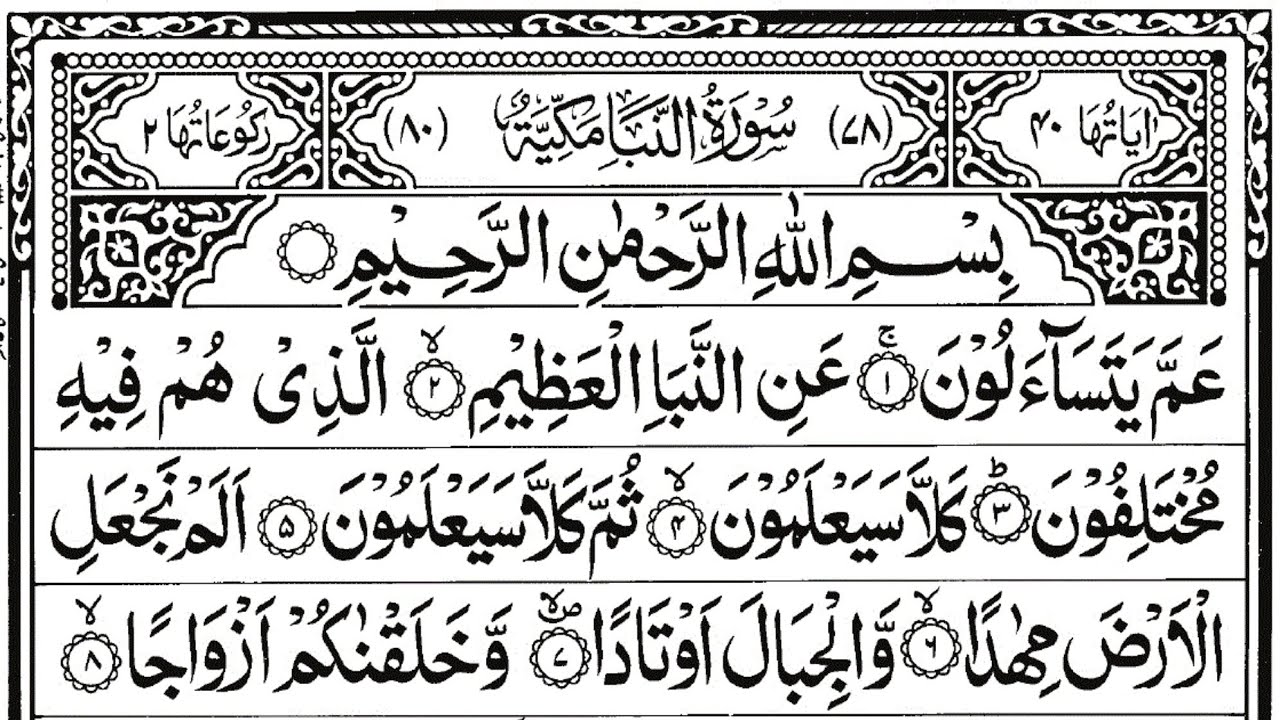 اٰيَاتُهَا ٤٠ (٧٨) سُوْرَةُ النَّبَاِ مَكِّيَّةٌ (٨٠) رُكُوْعَاتُهَا ٢
بِسْمِ اللّٰهِ الرَّحْمٰنِ الرَّحِيْمِ
عَمَّ يَتَسَآءَلُوْنَ ۚ‏﴿۱﴾ عَنِ النَّبَاِ الْعَظِيْمِ ۙ‏﴿۲﴾ الَّذِىْ هُمْ فِيْهِ
مُخْتَلِفُوْنَ ؕ‏﴿۳﴾ كَلَّا سَيَعْلَمُوْنَ ۙ‏﴿۴﴾ ثُمَّ كَلَّا سَيَعْلَمُوْنَ ‏﴿۵﴾ اَلَمْ نَجْعَلِ
الْاَرْضَ مِهٰدًا ۙ‏﴿۶﴾ وَّالْجِبَالَ اَوْتَادًا ۙ‏ۖ‏﴿۷﴾ وَّخَلَقْنٰكُمْ اَزْوَاجًا ۙ‏﴿۸﴾